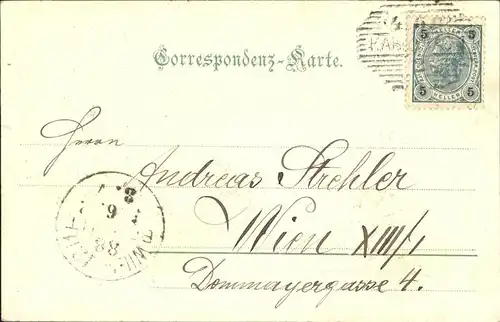 Correspondenz-Karte.
5 5
HELLER
5 5
Herrn
Andreas Strehler
Wien XIII/1
Dommayergasse 4.
8
6
88